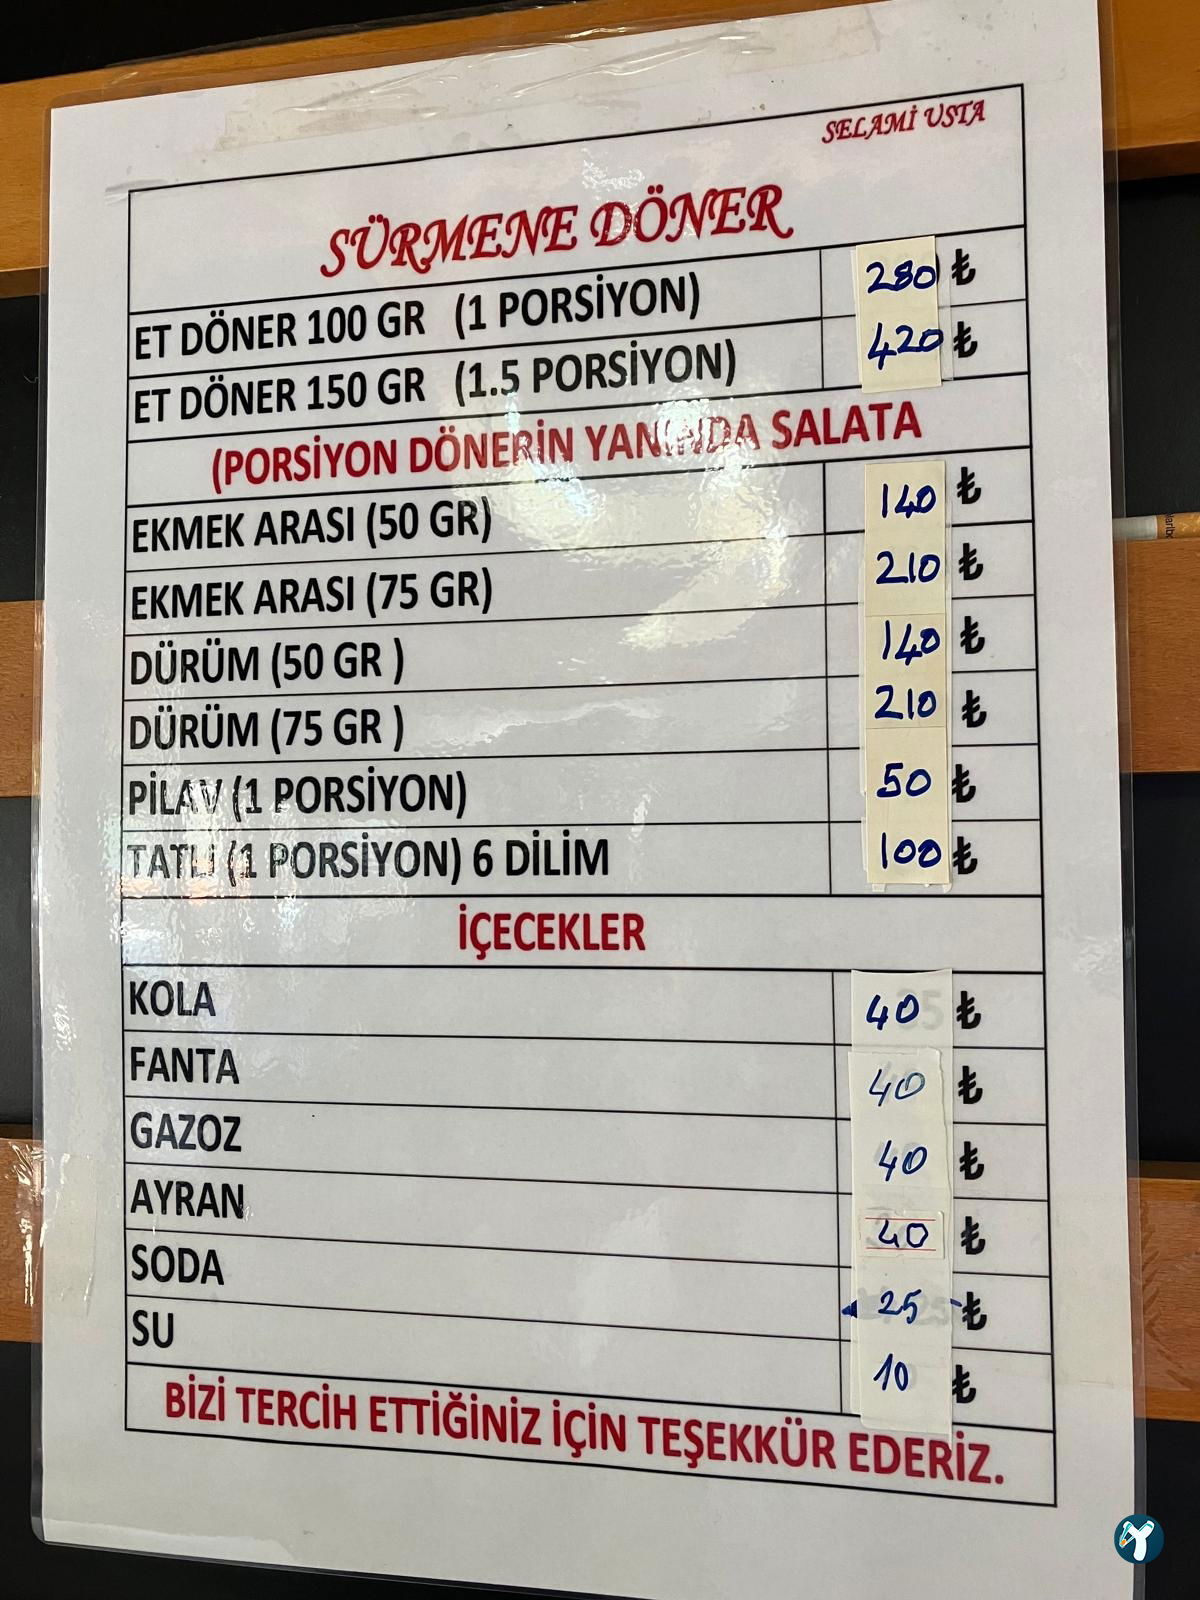 SELAMİ USTA
SÜRMENE DÖNER
ET DÖNER 100 GR (1 PORSİYON) 280 ₺
ET DÖNER 150 GR (1.5 PORSİYON) 420 ₺
(PORSİYON DÖNERİN YANINDA SALATA
EKMEK ARASI (50 GR) 140 ₺
EKMEK ARASI (75 GR) 210 ₺
DÜRÜM (50 GR ) 140 ₺
DÜRÜM (75 GR ) 210 ₺
PİLAV (1 PORSİYON) 50 ₺
TATLI (1 PORSİYON) 6 DİLİM 100 ₺
İÇECEKLER
KOLA 40 ₺
FANTA 40 ₺
GAZOZ 40 ₺
AYRAN 40 ₺
SODA 25 ₺
SU 10 ₺
BİZİ TERCİH ETTİĞİNİZ İÇİN TEŞEKKÜR EDERİZ.